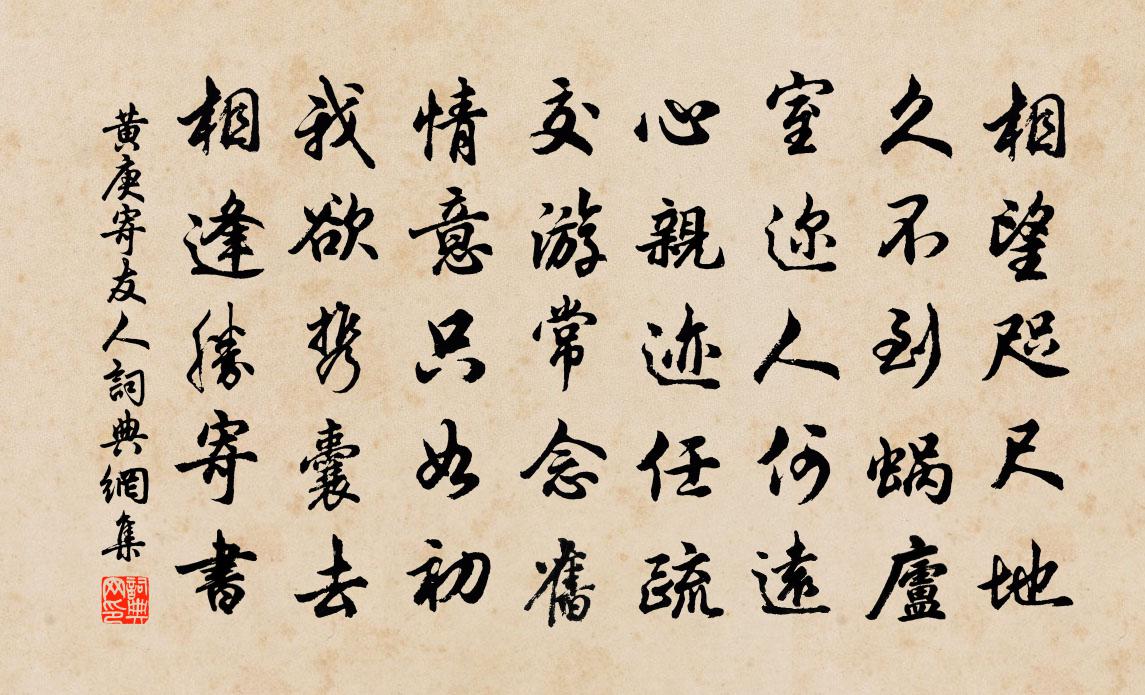 相望咫尺地
久不到蝸廬
室迩人何遠
心親迹任疏
交游常念舊
情意只如初
我欲携囊去
相逢勝寄書
黃庚寄友人詞典網集
詞典
网印